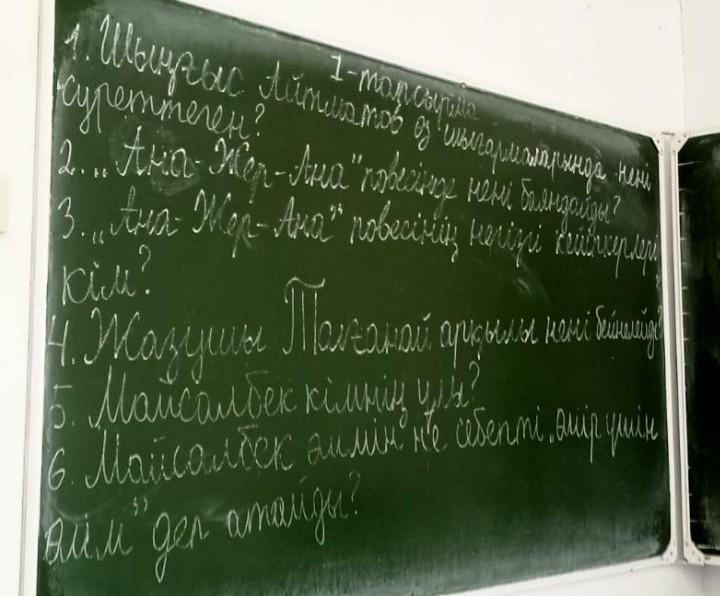 1-тапсырма
1. Шыңғыс Айтматов өз шығармаларында нені
суреттеген?
2. „Ана-Жер-Ана" повесінде нені баяндайды?
3. „Ана-Жер-Ана" повесінің негізгі кейіпкерлері
кім?
4. Жазушы Толғанай арқылы нені бейнелейді?
5. Майсалбек кімнің ұлы?
6. Майсалбек өлімін не себепті „өмір үшін
өлім" деп атайды?